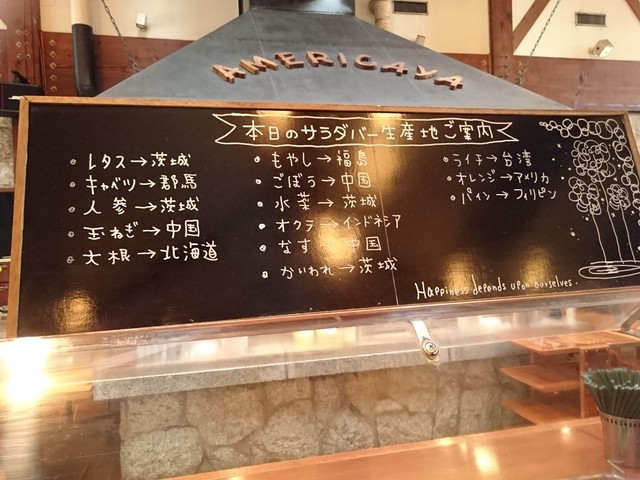 AMERICAYA
本日のサラダバー生産地ご案内
レタス→茨城
キャベツ→郡馬
人参→茨城
玉ねぎ→中国
大根→北海道
もやし→福島
ごぼう→中国
水菜→茨城
オクラ→インドネシア
なす→中国
かいわれ→茨城
ライチ→台湾
オレンジ→アメリカ
パイン→フィリピン
Happiness depends upon ourselves.